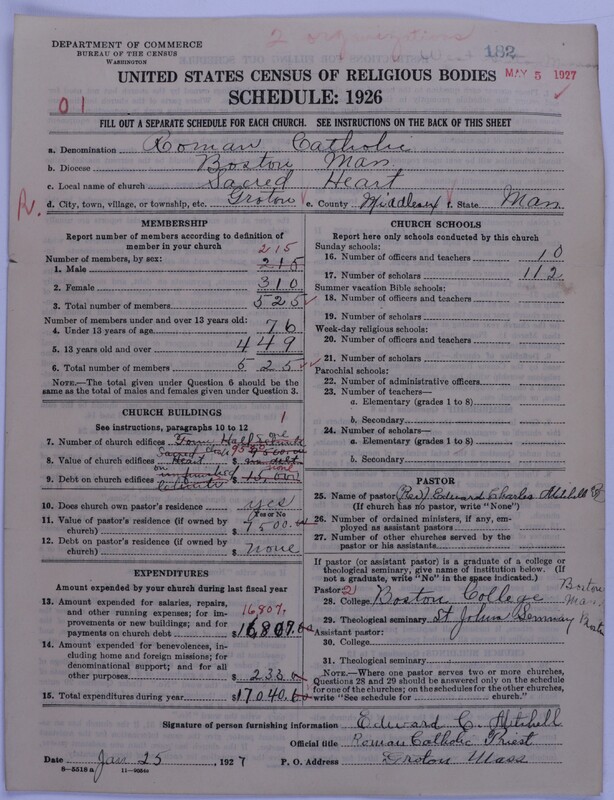 2 organizations
DEPARTMENT OF COMMERCE
BUREAU OF THE CENSUS
WASHINGTON
182
MAY 5 1927
UNITED STATES CENSUS OF RELIGIOUS BODIES
SCHEDULE: 1926
01
FILL OUT A SEPARATE SCHEDULE FOR EACH CHURCH. SEE INSTRUCTIONS ON THE BACK OF THIS SHEET
a. Denomination Roman Catholic
b. Diocese Boston Mass
c. Local name of church Sacred Heart
R. d. City, town, village, or township, etc. Groton e. County Middlesex f. State Mass
MEMBERSHIP
Report number of members according to definition of member in your church
215
Number of members, by sex:
1. Male 215
2. Female 310
3. Total number of members 525
Number of members under and over 13 years old:
4. Under 13 years of age 76
5. 13 years old and over 449
6. Total number of members 525
NOTE.—The total given under Question 6 should be
the same as the total of males and females given under Question 3.
CHURCH BUILDINGS
1
See instructions, paragraphs 10 to 12
7. Number of church edifices Town Hall one
Sacred
8. Value of church edifices Heart $
9. Debt on church edifices $ none
10. Does church own pastor's residence yes
Yes or No
11. Value of pastor's residence (if owned by
church) $ 7500.00
12. Debt on pastor's residence (if owned by
church) $ none
EXPENDITURES
Amount expended by your church during last fiscal year
13. Amount expended for salaries, repairs,
and other running expenses; for im-
provements or new buildings; and for
payments on church debt $ 16807.00
16807.
14. Amount expended for benevolences, in-
cluding home and foreign missions; for
denominational support; and for all
other purposes $ 233.00
15. Total expenditures during year $ 17040.00
CHURCH SCHOOLS
Report here only schools conducted by this church
Sunday schools:
16. Number of officers and teachers 10
17. Number of scholars 112
Summer vacation Bible schools:
18. Number of officers and teachers
19. Number of scholars
Week-day religious schools:
20. Number of officers and teachers
21. Number of scholars
Parochial schools:
22. Number of administrative officers
23. Number of teachers—
a. Elementary (grades 1 to 8)
b. Secondary
24. Number of scholars—
a. Elementary (grades 1 to 8)
b. Secondary
PASTOR
25. Name of pastor (Rev) Edward Charles Mitchell
(If church has no pastor, write "None")
26. Number of ordained ministers, if any, em-
ployed as assistant pastors
27. Number of other churches served by the
pastor or his assistants
If pastor (or assistant pastor) is a graduate of a college or
theological seminary, give name of institution below. (If
not a graduate, write "No" in the space indicated.)
Pastor: 2
28. College Boston College Boston Mass.
29. Theological seminary St Johns Seminary
Assistant pastor:
30. College
31. Theological seminary
NOTE.—Where one pastor serves two or more churches,
Questions 28 and 29 should be answered only on the schedule
for one of the churches; on the schedules for the other churches,
write "See schedule for church."
Signature of person furnishing information Edward C. Mitchell
Official title Roman Catholic Priest
Date Jan 25, 1927 P. O. Address Groton Mass
8—5518 a